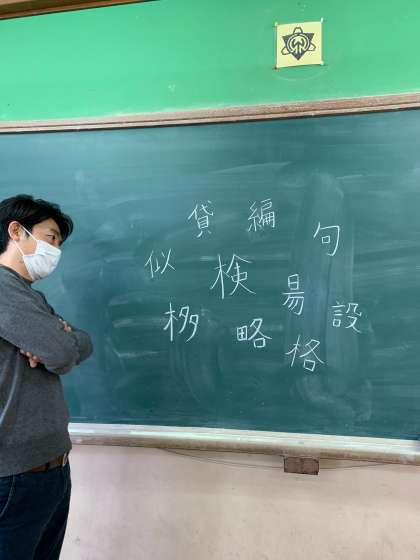 貸
編
句
似
検
昜
設
栘
略
格